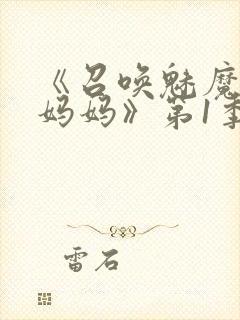 《召唤魅魔
妈妈》第1季
雷石